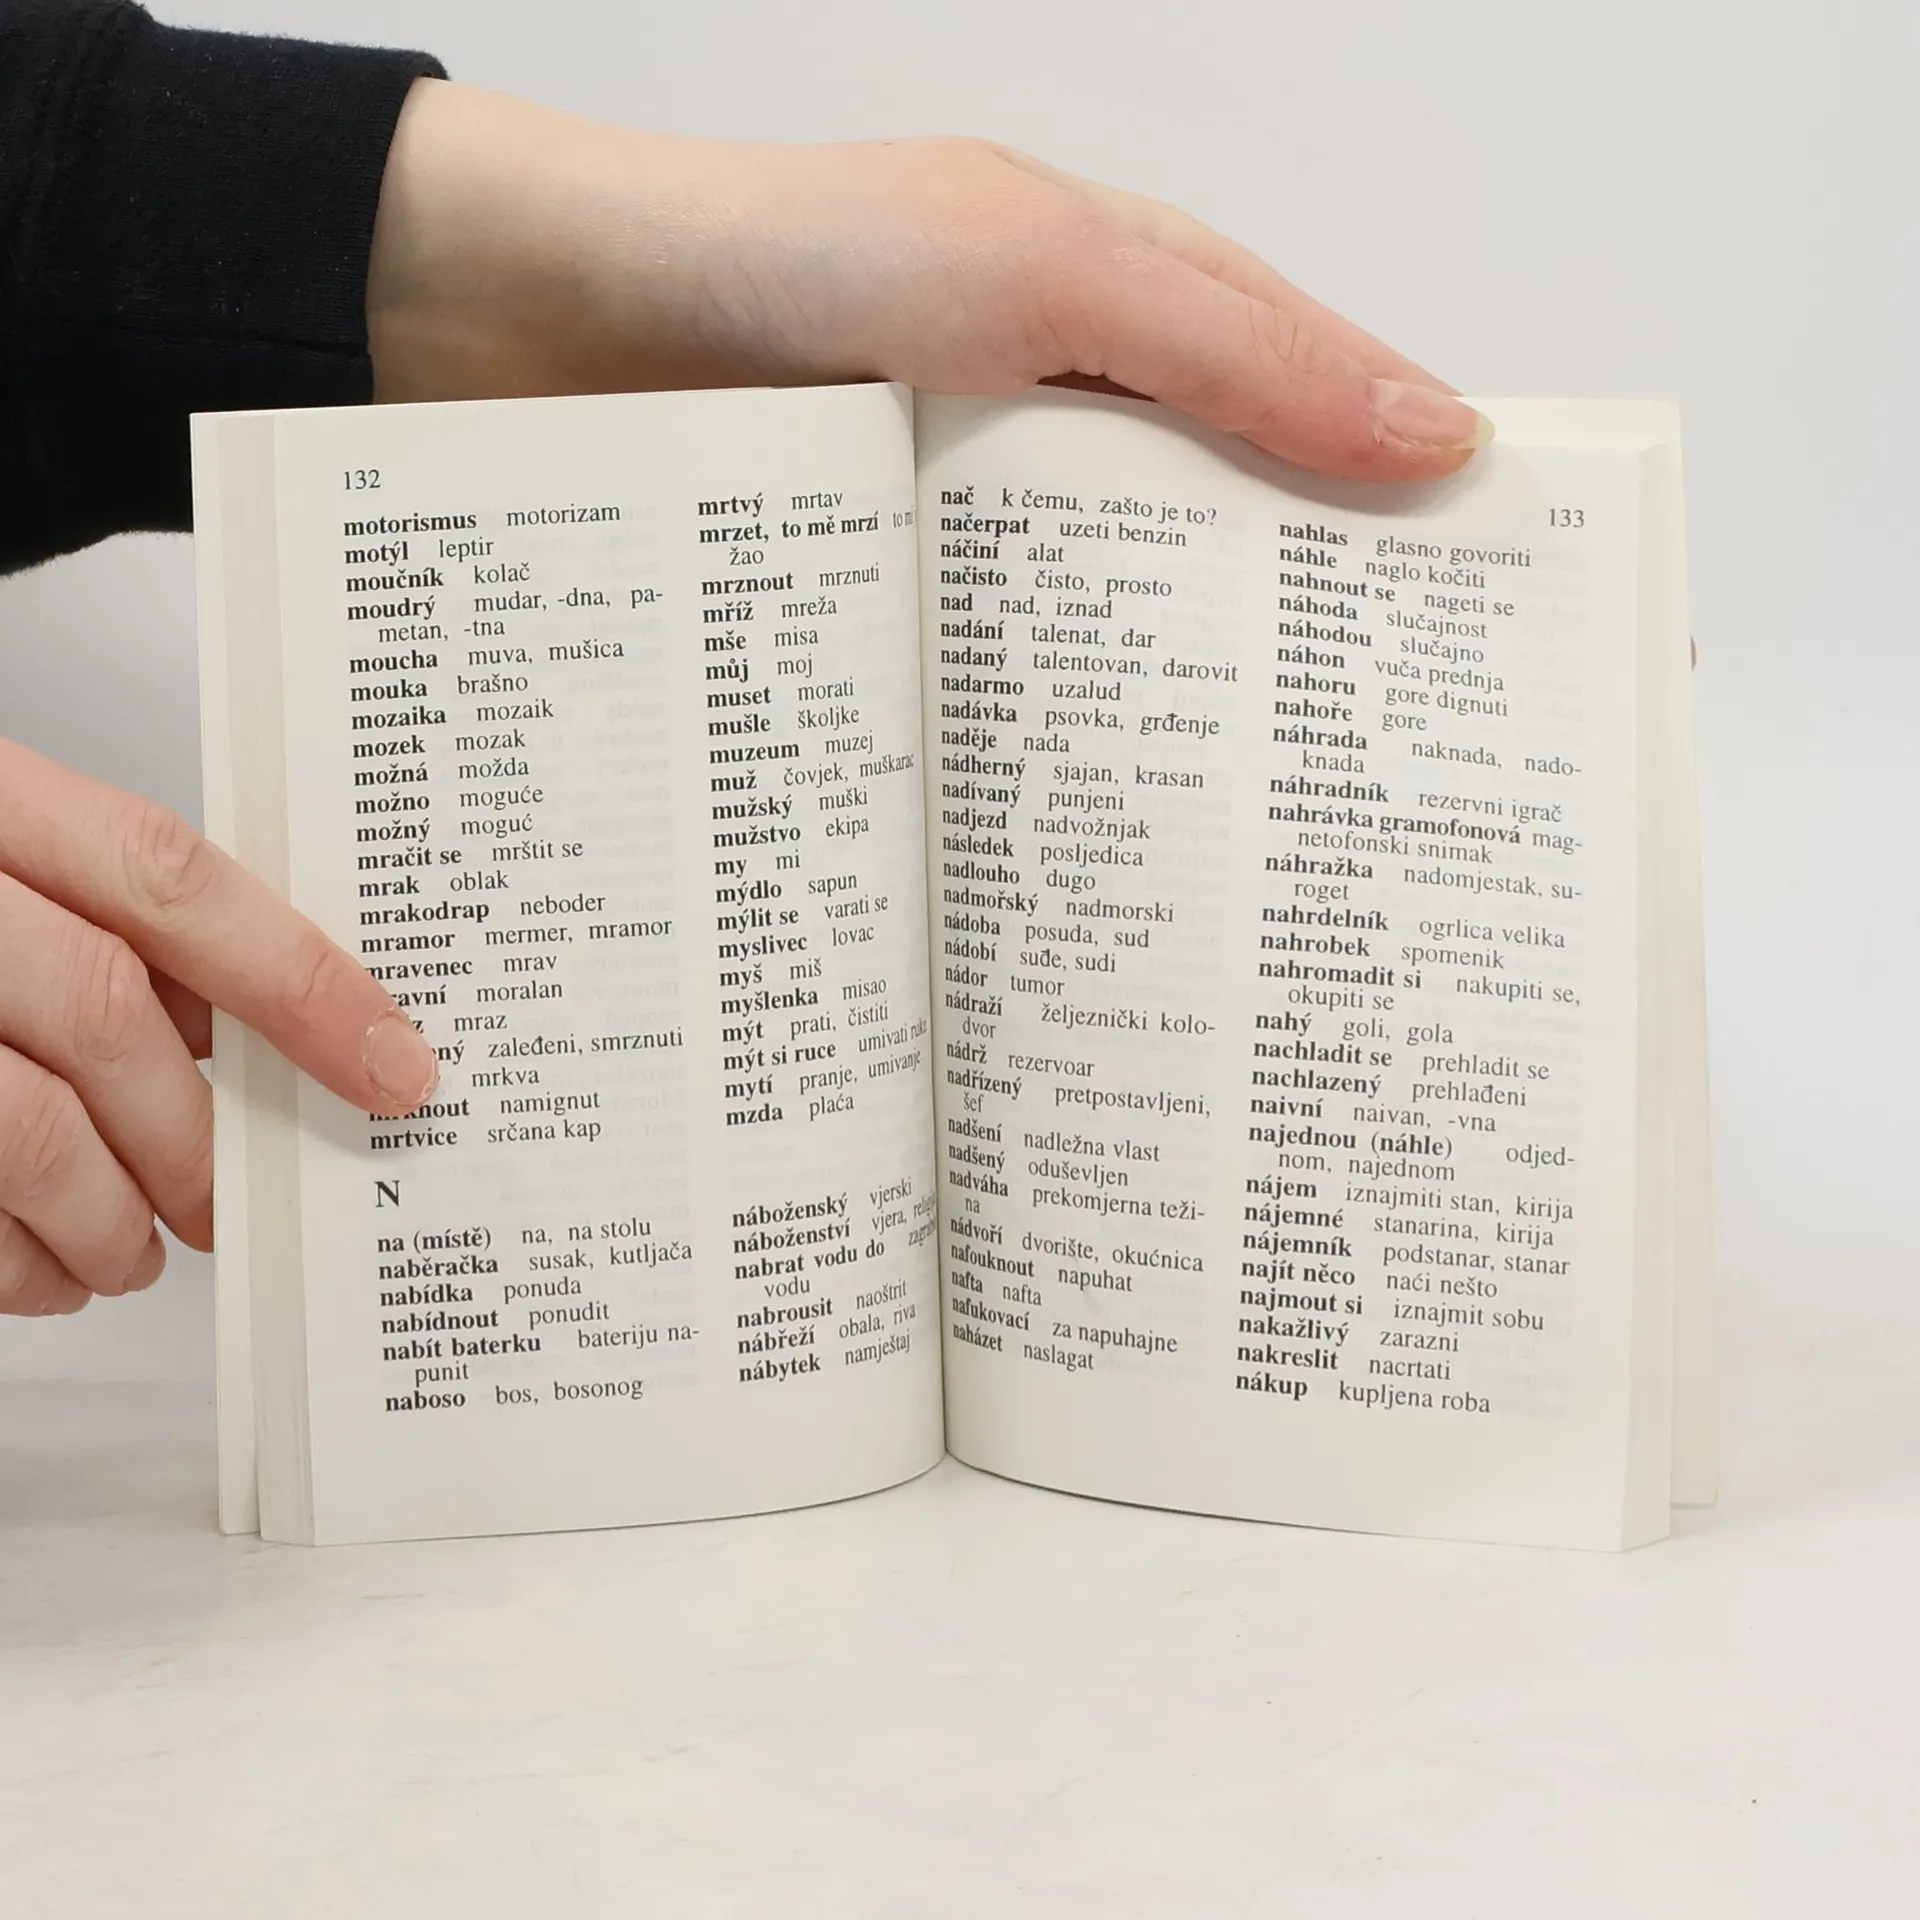 132
motorismus motorizam
motýl leptir
moučník kolač
moudrý mudar, -dna, pa-
metan, -tna
moucha muva, mušica
mouka brašno
mozaika mozaik
mozek mozak
možná možda
možno moguće
možný moguć
mračit se mrštit se
mrak oblak
mrakodrap neboder
mramor mermer, mramor
mravenec mrav
moralan
mraz
zaleđeni, smrznuti
mrkva
namignut
mrtvice srčana kap
N
na (místě) na, na stolu
naběračka susak, kutljača
nabídka ponuda
nabídnout ponudit
nabít baterku bateriju na-
punit
naboso bos, bosonog
mrtvý mrtav
mrzet, to mě mrzí to mi
žao
mrznout mrznuti
mříž mreža
mše misa
můj moj
muset morati
mušle školjke
muzeum muzej
muž čovjek, muškarac
mužský muški
mužstvo ekipa
my mi
mýdlo sapun
mýlit se varati se
myslivec lovac
myš miš
myšlenka misao
mýt prati, čistiti
mýt si ruce umivati ruke
mytí pranje, umivanje
mzda plaća
náboženský vjerski
náboženství vjera,
nabrat vodu do
vodu
nabrousit naoštrit
nábřeží obala, riva
nábytek namještaj
133
nač k čemu, zašto je to?
načerpat uzeti benzin
náčiní alat
načisto čisto, prosto
nad nad, iznad
nadání talenat, dar
nadaný talentovan, darovit
nadarmo uzalud
nadávka psovka, grđenje
naděje nada
nádherný sjajan, krasan
nadívaný punjeni
nadjezd nadvožnjak
následek posljedica
nadlouho dugo
nadmořský nadmorski
nádoba posuda, sud
nádobí suđe, sudi
nádor tumor
nádraží željeznički kolo-
dvor
nádrž rezervoar
nadřízený pretpostavljeni,
šef
nadšení nadležna vlast
nadšený oduševljen
nadváha prekomjerna teži-
na
nádvoří dvorište, okućnica
nafouknout napuhat
nafta nafta
nafukovací za napuhajne
naházet naslagat
nahlas glasno govoriti
náhle naglo kočiti
nahnout se nageti se
náhoda slučajnost
náhodou slučajno
náhon vuča prednja
nahoru gore dignuti
nahoře gore
náhrada naknada, nado-
knada
náhradník rezervni igrač
nahrávka gramofonová mag-
netofonski snimak
náhražka nadomjestak, su-
roget
nahrdelník ogrlica velika
nahrobek spomenik
nahromadit si nakupiti se,
okupiti se
nahý goli, gola
nachladit se prehladit se
nachlazený prehlađeni
naivní naivan, -vna
najednou (náhle) odjed-
nom, najednom
nájem iznajmiti stan, kirija
nájemné stanarina, kirija
nájemník podstanar, stanar
najít něco naći nešto
najmout si iznajmit sobu
nakažlivý zarazni
nakreslit nacrtati
nákup kupljena roba